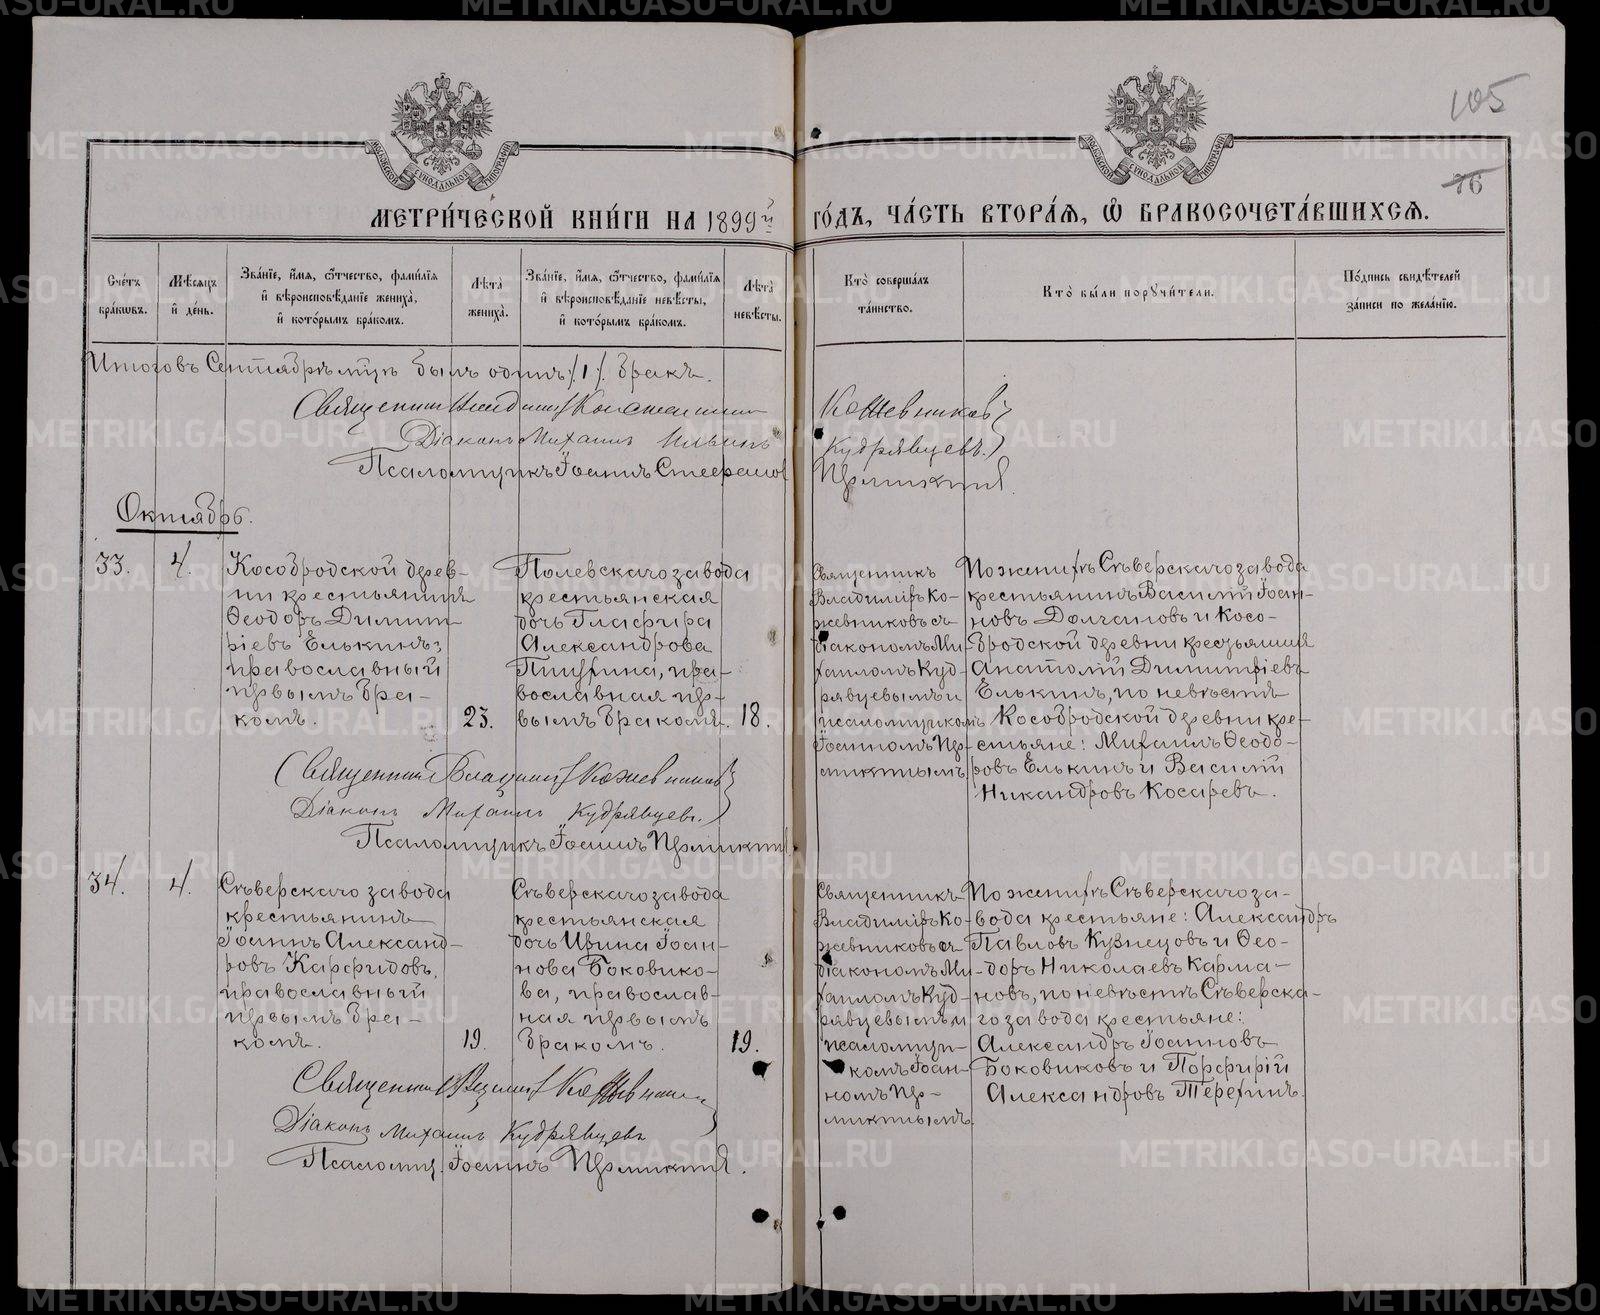 105
76
МОСКОВСКОЙ СѴНОДАЛЬНОЙ ТИПОГРАФІИ
МОСКОВСКОЙ СѴНОДАЛЬНОЙ ТИПОГРАФІИ
МЕТРИ́ЧЕСКОЙ КНИ́ГИ НА 1899й ГО́ДЪ, ЧА́СТЬ ВТОРА́Я, Ѡ БРАКОСОЧЕТА́ВШИХСЯ.
Сче́тъ бра́кωвъ.
Мѣ́сяцъ и҆ де́нь.
Зва́нїе, и҆́мя, ѻ҆́тчество, фами́лїя и҆ вѣроисповѣ́данїе жениха̀, и҆ кото́рымъ бра́комъ.
Лѣта̀ жениха̀.
Зва́нїе, и҆́мя, ѻ҆́тчество, фами́лїя и҆ вѣроисповѣ́данїе невѣ́сты, и҆ кото́рымъ бра́комъ.
Лѣта̀ невѣ́сты.
Кто̀ соверша́лъ та́инство.
Кто̀ бы́ли порꙋчи́тели.
По́дпись свидѣ́телей за́писи по жела́нїю.
Итого въ Сентябрѣ мцѣ былъ одинъ /1/ бракъ.
Священник Кожевников
Діаконъ Михаилъ Ильинъ Кудрявцевъ.
Псаломщикъ Іоаннъ Стефанов
Октябрь.
33.
4.
Кособродской дерев-
ни крестьянинъ
Ѳеодоръ Димит-
ріевъ Елькинъ,
православный
первымъ бра-
комъ.
23.
Полевскаго завода
крестьянская
дочь Глафира
Александрова
Пишгина, пра-
вославная пер-
вымъ бракомъ.
18.
Священникъ
Владиміръ Ко-
жевниковъ съ
діакономъ Ми-
хаиломъ Куд-
рявцевымъ и
псаломщикомъ
Іоанномъ Пер-
микинымъ.
По женихѣ Сѣверскаго завода
крестьянинъ Василій Іоан-
новъ Долгановъ и Косо-
бродской деревни крестьянин
Анатолій Димитріевъ
Елькинъ, по невѣстѣ
Кособродской деревни кре-
стьяне: Михаилъ Ѳеодо-
ровъ Елькинъ и Василій
Никандровъ Косаревъ.
Священник Владимір Кожевников
Діаконъ Михаилъ Кудрявцевъ.
Псаломщикъ Іоаннъ Пермикин
34.
4.
Сѣверскаго завода
крестьянинъ
Іоаннъ Александ-
ровъ Карфидовъ,
православный
первымъ бра-
комъ.
19.
Сѣверскаго завода
крестьянская
дочь Ирина Іоан-
нова Боковико-
ва, православ-
ная первымъ
бракомъ.
19.
Священникъ
Владиміръ Ко-
жевниковъ съ
діакономъ Ми-
хаиломъ Куд-
рявцевымъ и
псаломщи-
комъ Іоан-
номъ Пер-
микинымъ.
По женихѣ Сѣверскаго за-
вода крестьяне: Александръ
Павловъ Кузнецовъ и Ѳео-
доръ Николаевъ Карма-
новъ, по невѣстѣ Сѣверска-
го завода крестьяне:
Александръ Іоанновъ
Боковиковъ и Порфирій
Александровъ Терехинъ.
Священник Владимір Кожевников
Діаконъ Михаилъ Кудрявцевъ
Псаломщ. Іоаннъ Пермикин.
METRIKI.GASO-URAL.RU